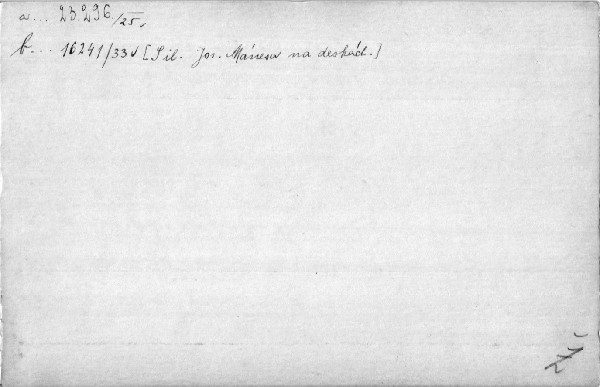 a... 23.296/25.
b... 16241/33 [S il. Jos. Mánesa na deskách.]